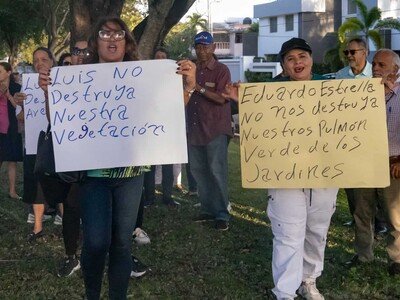 Luis No
Destruya
Nuestra
Vegetación
Eduardo Estrella
No nos destruya
Nuestros Pulmón
Verde de los
Jardines